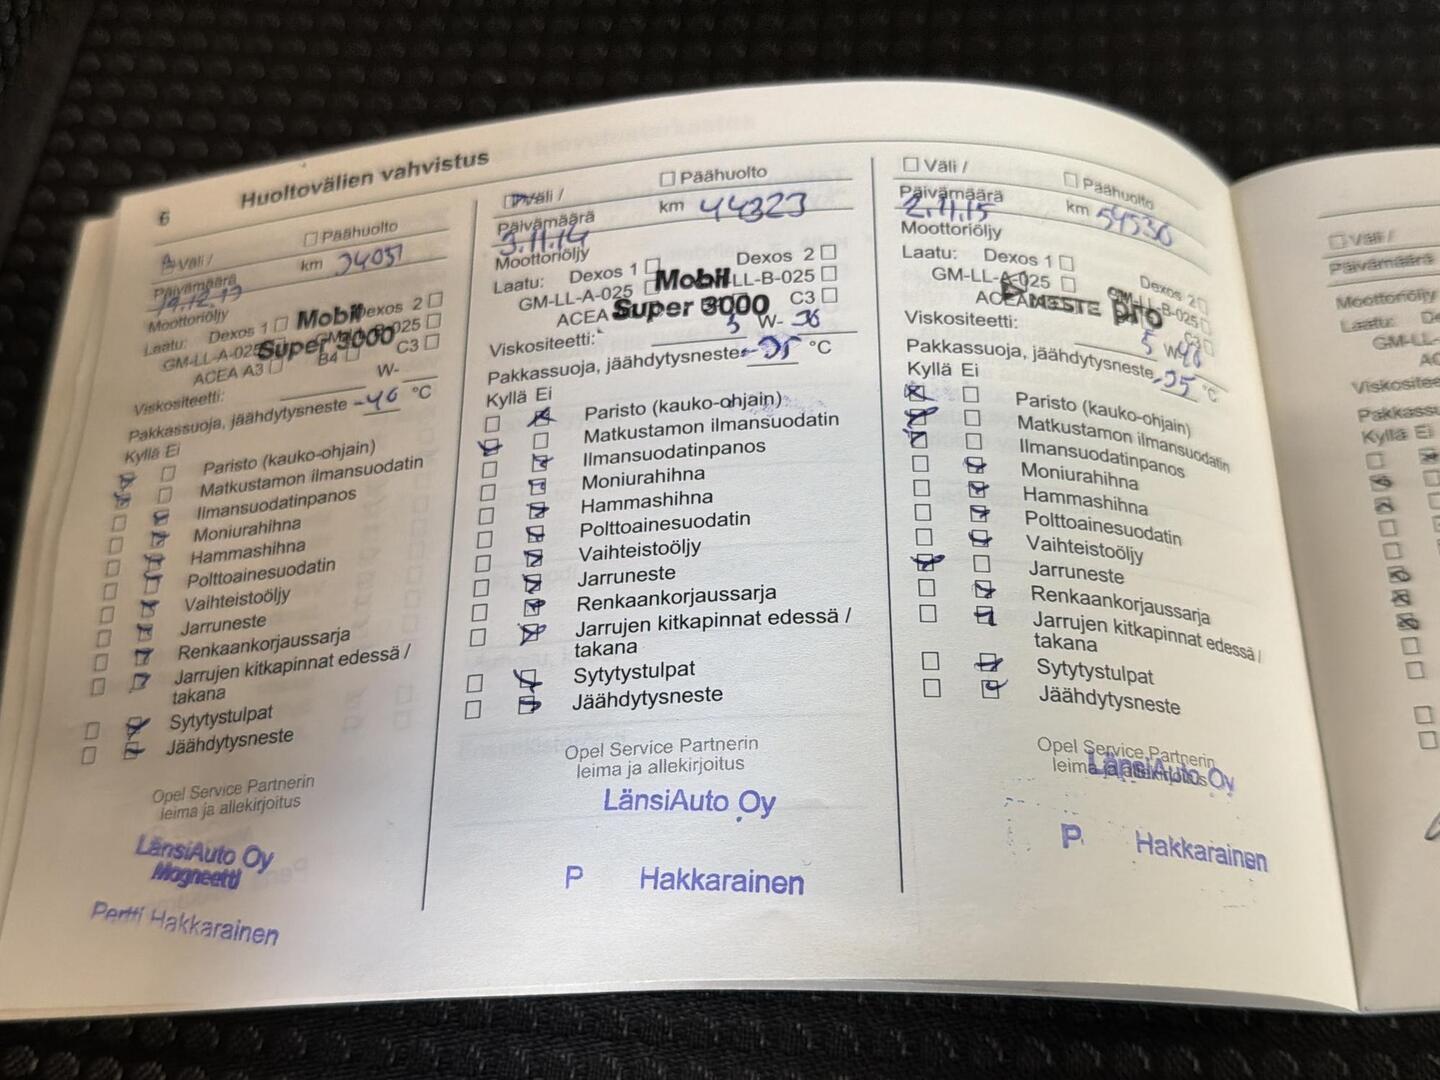 6
Huoltovälien vahvistus
Väli /
Päähuolto
Päivämäärä
km 34037
19.12.13
Moottoriöljy
Laatu:
Dexos 1
Dexos 2
GM-LL-A-025
B-025
Mobil
Super 3000
ACEA A3
B4
C3
Viskositeetti:
W-
Pakkassuoja, jäähdytysneste -40 °C
Kyllä Ei
Paristo (kauko-ohjain)
Matkustamon ilmansuodatin
Ilmansuodatinpanos
Moniurahihna
Hammashihna
Polttoainesuodatin
Vaihteistoöljy
Jarruneste
Renkaankorjaussarja
Jarrujen kitkapinnat edessä /
takana
Sytytystulpat
Jäähdytysneste
Opel Service Partnerin
leima ja allekirjoitus
LänsiAuto Oy
Mogneetti
Pertti Hakkarainen
Väli /
Päähuolto
Päivämäärä
km 44323
3.11.14
Moottoriöljy
Laatu:
Dexos 1
Dexos 2
GM-LL-A-025
LL-B-025
Mobil
Super 3000
ACEA
C3
Viskositeetti: 5 W- 30
Pakkassuoja, jäähdytysneste -35 °C
Kyllä Ei
Paristo (kauko-ohjain)
Matkustamon ilmansuodatin
Ilmansuodatinpanos
Moniurahihna
Hammashihna
Polttoainesuodatin
Vaihteistoöljy
Jarruneste
Renkaankorjaussarja
Jarrujen kitkapinnat edessä /
takana
Sytytystulpat
Jäähdytysneste
Opel Service Partnerin
leima ja allekirjoitus
LänsiAuto Oy
P Hakkarainen
Väli /
Päähuolto
Päivämäärä
km 54536
2.11.15
Moottoriöljy
Laatu:
Dexos 1
Dexos 2
GM-LL-A-025
GM-LL-B-025
ACEA
NESTE pro
C3
Viskositeetti: 5 W 40
Pakkassuoja, jäähdytysneste -35 °C
Kyllä Ei
Paristo (kauko-ohjain)
Matkustamon ilmansuodatin
Ilmansuodatinpanos
Moniurahihna
Hammashihna
Polttoainesuodatin
Vaihteistoöljy
Jarruneste
Renkaankorjaussarja
Jarrujen kitkapinnat edessä /
takana
Sytytystulpat
Jäähdytysneste
Opel Service Partnerin
leima ja allekirjoitus
LänsiAuto Oy
P. Hakkarainen
Väli /
Päivämäärä
Moottoriöljy
Laatu:
GM-LL-
Kyllä Ei